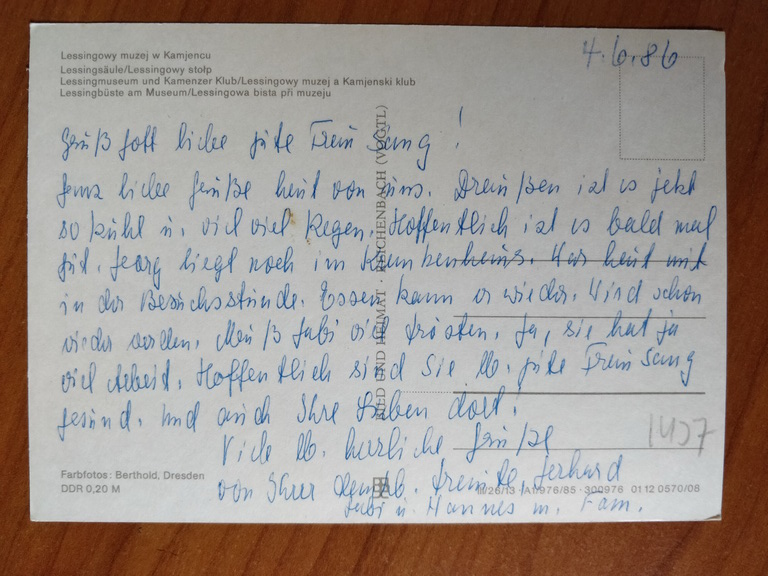 Lessingowy muzej w Kamjencu
Lessingsäule/Lessingowy stołp
Lessingmuseum und Kamenzer Klub/Lessingowy muzej a Kamjenski klub
Lessingbüste am Museum/Lessingowa bista při muzeju
4.6.86
Grüß Gott liebe gute Frau Sang!
Ganz liebe Grüße heut von uns. Draußen ist es jetzt
so kühl u. viel viel Regen. Hoffentlich ist es bald mal
gut. Georg liegt noch im Krankenhaus. War heut mit
in der Besuchsstunde. Essen kann er wieder. Wird schon
wieder werden. Muß Gabi viel trösten. Ja, sie hat ja
viel Arbeit. Hoffentlich sind Sie lb. gute Frau Sang
gesund. Und auch Ihre Lieben dort!
Viele lb. herzliche Grüße
von Ihrer Gerhard
Gabi u. Hannes m. Fam.
BILD UND HEIMAT · REICHENBACH (VOGTL)
1457
Farbfotos: Berthold, Dresden
DDR 0,20 M
III/26/13 A1/976/85 300976 01 12 0570/06